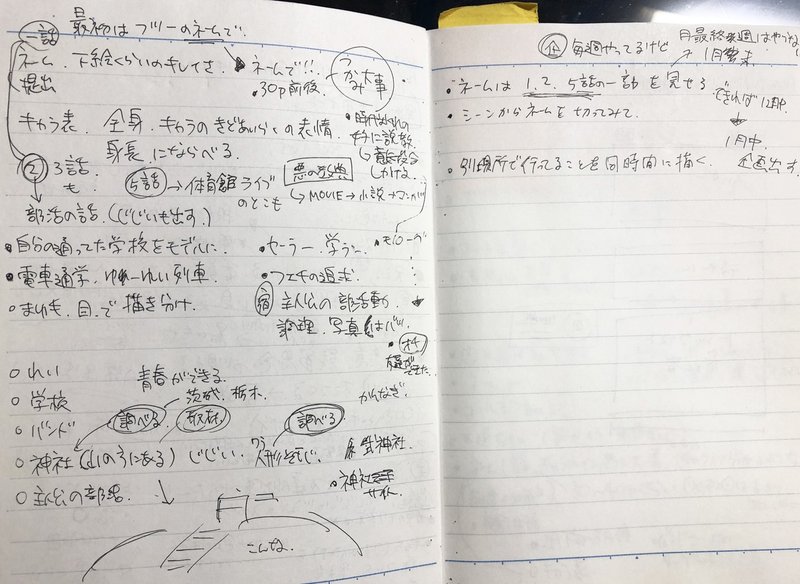 一話 最初はフツーのネームで。
ネーム、下絵くらいのキレイさ
提出
ネームで!!
・30p前後。
つかみ大事
キャラ表、全身、キャラのきどあいらくの表情、
身長にならべる。
② 3話
も
5話→体育館ライブ
のとこも
悪の教典
↳MOVIE→小説→マンガ
部活の話(じじいも出す。)
・自分の通ってた学校をモデルに。
・電車通学、ゆーれい列車。
・まゆ毛、目、で描き分け。
・セーラー、学ラン
・モノローグ
・フェチの追求
宿 主人公の部活動
調理、写真はバツ。
・オチ
○れい
○学校
○バンド
○神社(山の方にある)
○主人公の部活。
青春ができる。
茨城、栃木、
調べる 取材 調べる
じじい、
神社
かんなぎ、
・神社
サイト、
こんな。
企 毎週やってるけど
月最終週はやらない
→1月末
・ネームは1、2、5話の一部を見せる
できれば12月中
・シーンからネームを切ってみて。
1月中
企画出す。
・別場所で行ってることを同時間に描く。